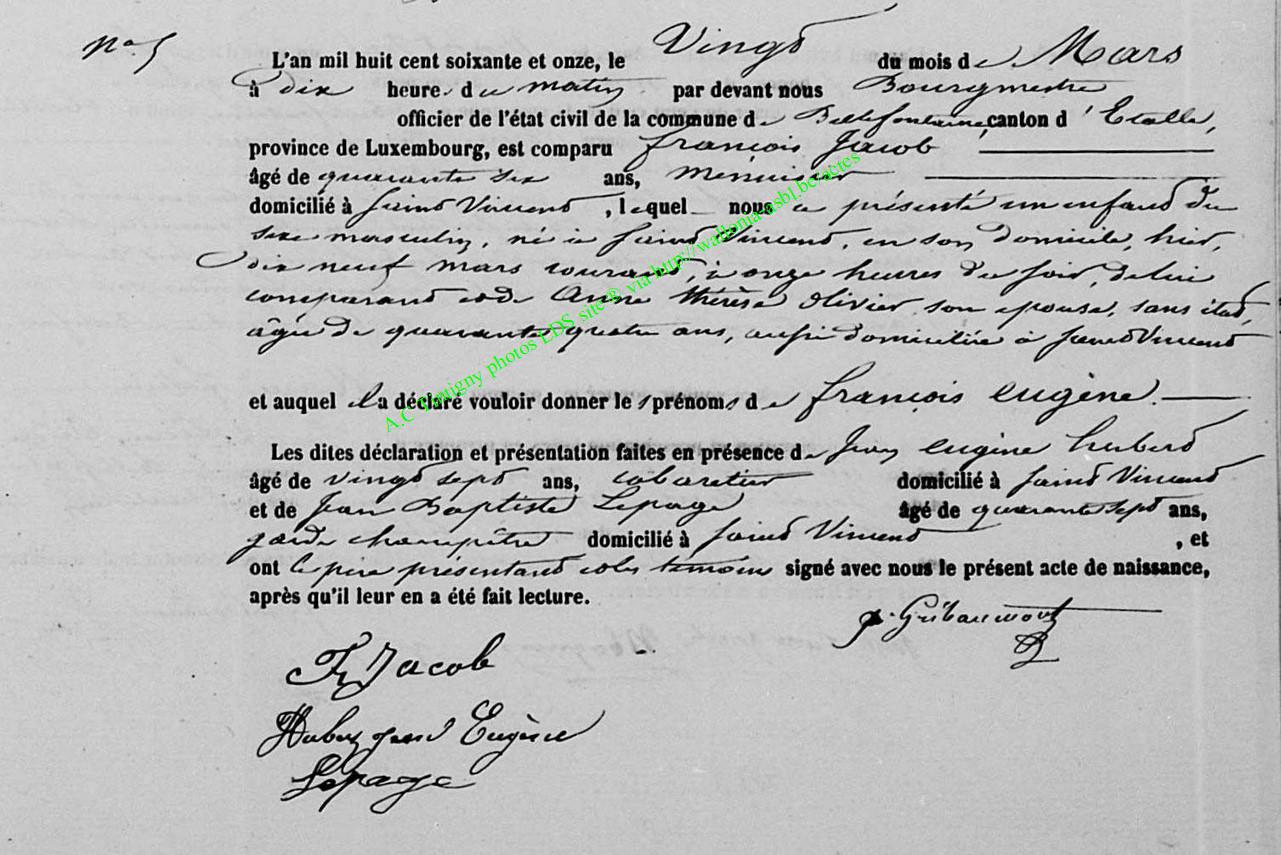 N° 5
L'an mil huit cent soixante et onze, le Vingt du mois de Mars
à dix heures du matin par devant nous Bourgmestre
officier de l'état civil de la commune de Bellefontaine, canton d'Etalle,
province de Luxembourg, est comparu françois Jacob
âgé de quarante six ans, menuisier
domicilié à Saint Vincent, lequel nous a présenté un enfant du
sexe masculin, né à Saint Vincent, en son domicile hier,
dix neuf mars courant, à onze heures du soir, de lui
comparant et de Anne thérèse Olivier, son épouse, sans état,
âgée de quarante quatre ans, aussi domiciliée à Saint Vincent
et auquel il a déclaré vouloir donner les prénoms de françois eugène.
Les dites déclaration et présentation faites en présence de Jean eugène hubert
âgé de vingt sept ans, cabaretier domicilié à Saint Vincent
et de Jean Baptiste Lepage âgé de quarante sept ans,
garde champêtre domicilié à Saint Vincent, et
ont le père présentant et les témoins signé avec nous le présent acte de naissance,
après qu'il leur en a été fait lecture.
Gribaumont
Fr Jacob
Hubert jean Eugène
Lepage
A.C Tintigny photos LDS site © via http://wallonia-asbl.be/actes